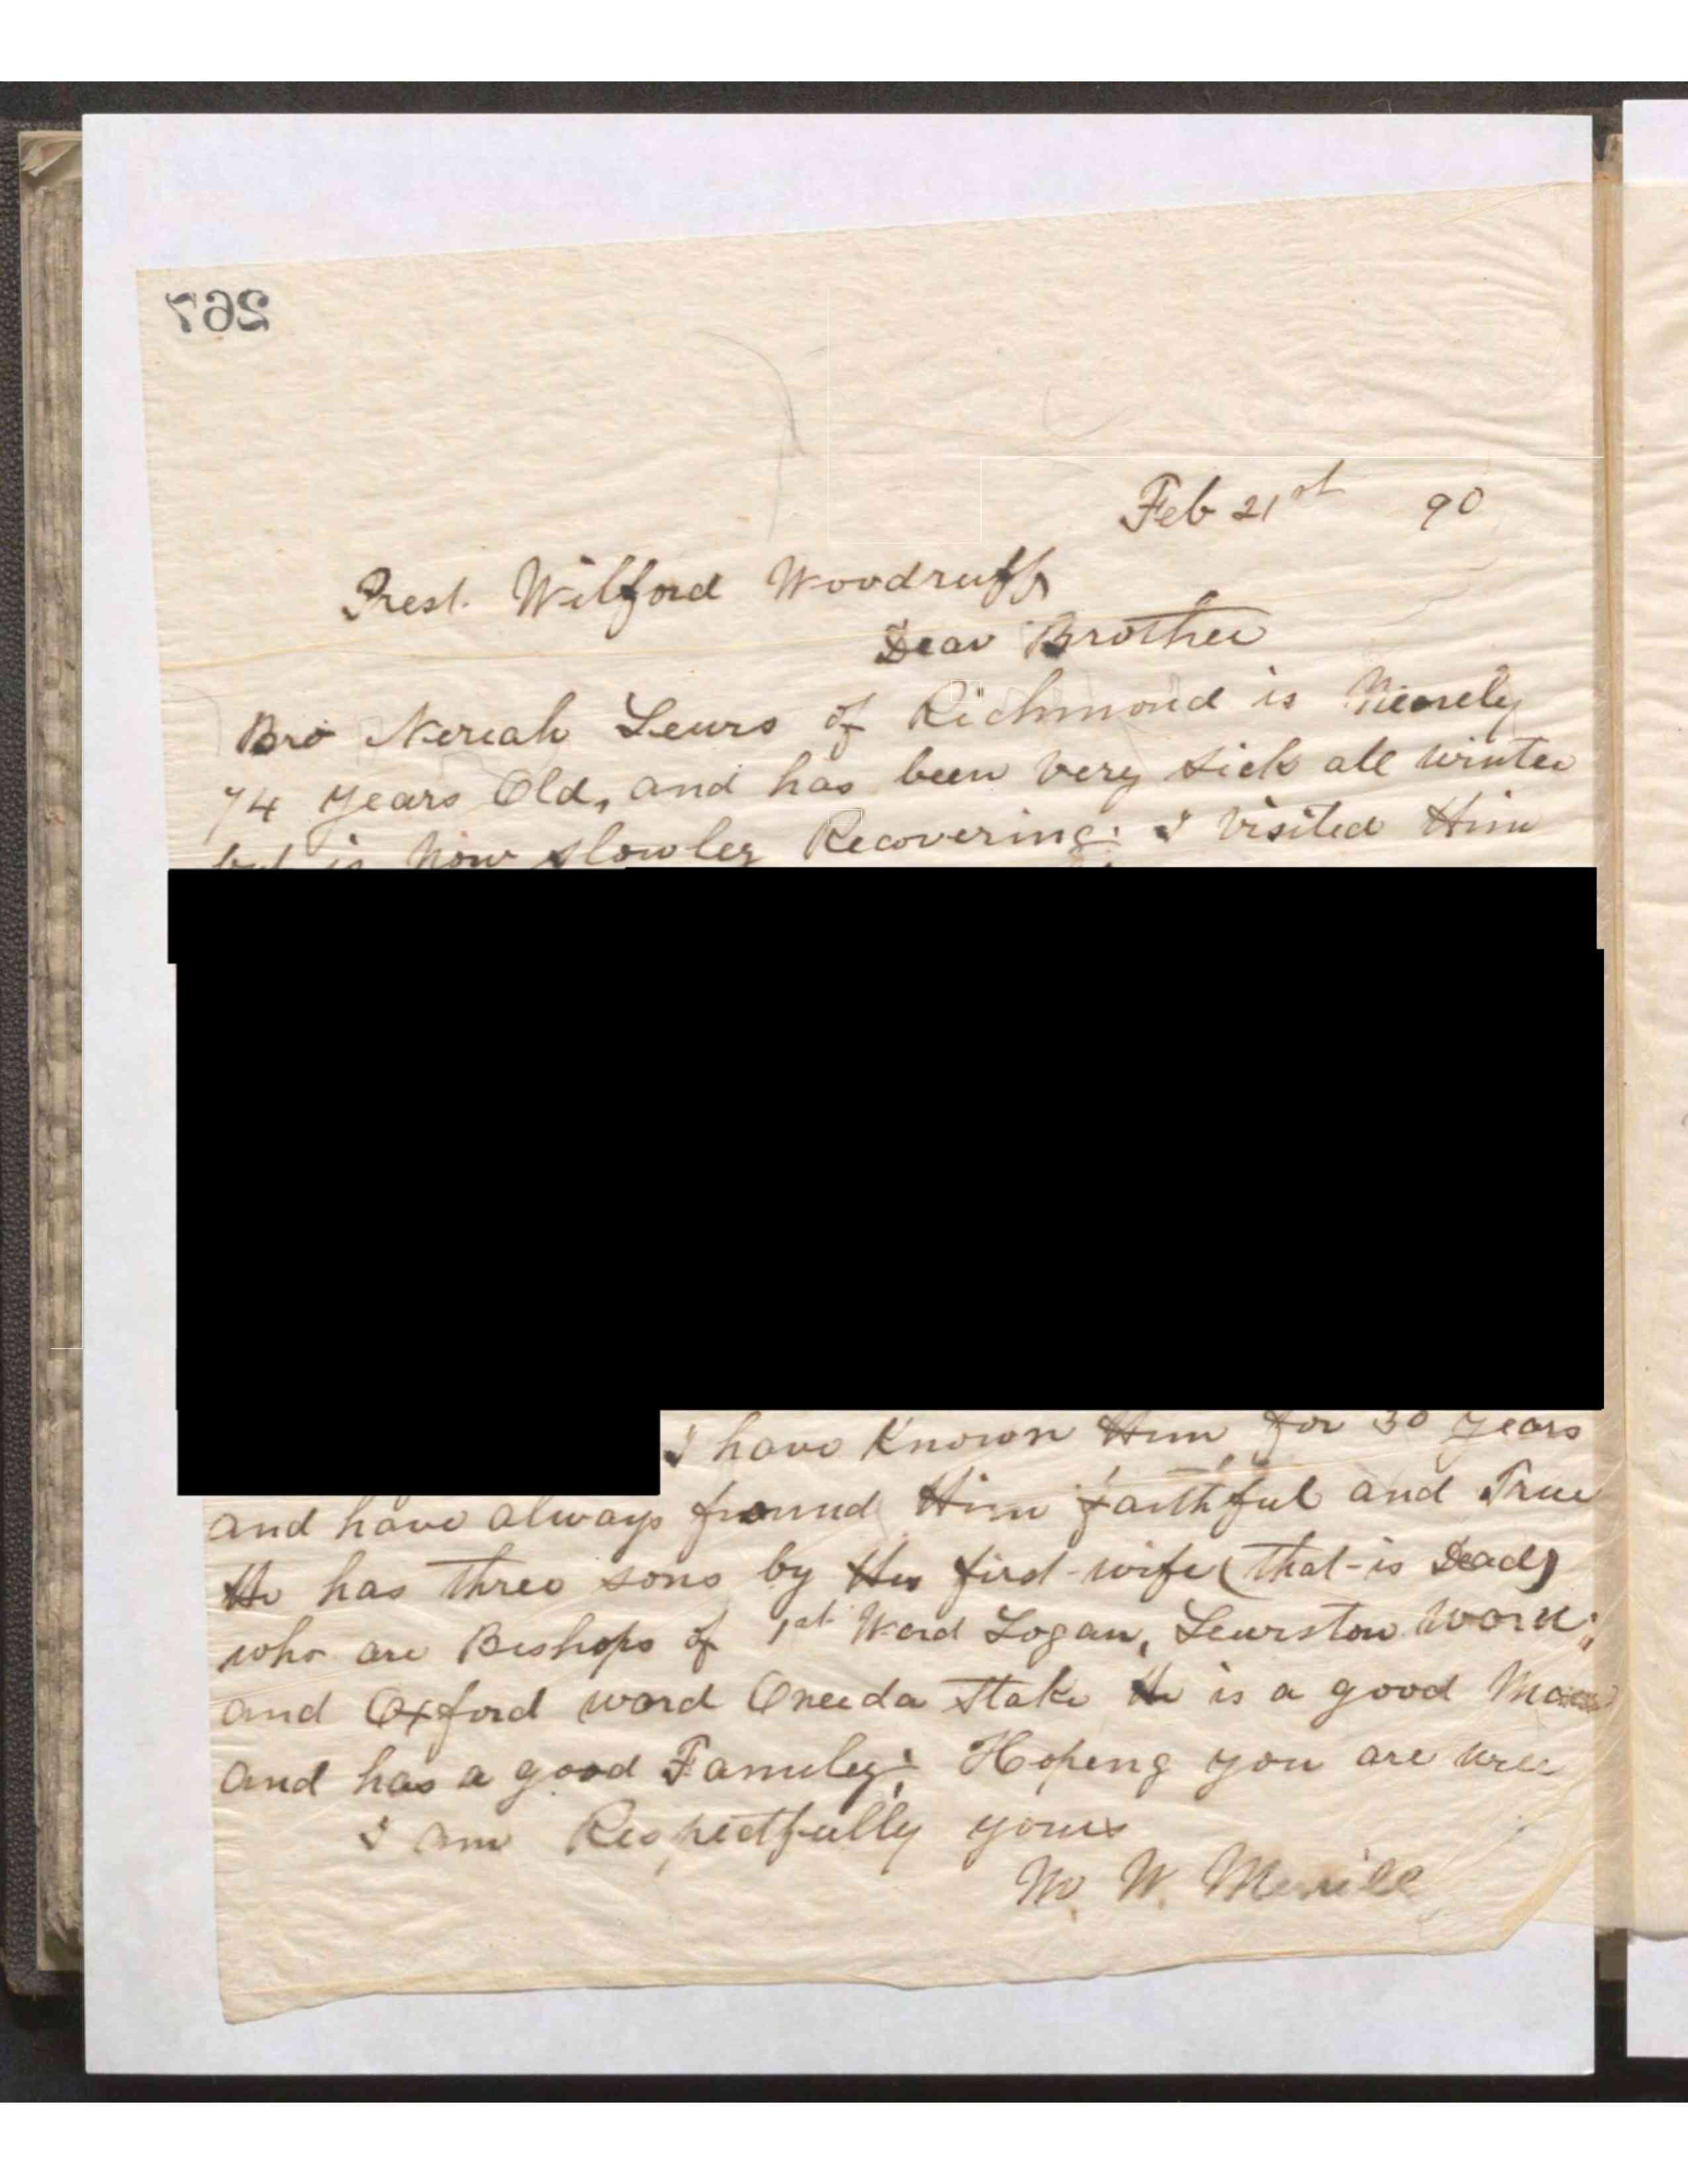 267
Feb 21st 90
Prest. Wilford Woodruff
Dear Brother
Bro Neriah Lewis of Richmond is Nearely
74 years Old, and has been very sick all winter
but is now slowley Recovering: I visited Him
I have Known Him for 30 years
and have always found Him faithful and True
He has three sons by His first wife (that is Dead)
who are Bishops of 1st Ward Logan, Lewiston Ward,
and Oxford ward Oneida Stake He is a good Man
and has a good Famuley: Hopeng you are well
I am Respectfully yours
M. W. Merrill